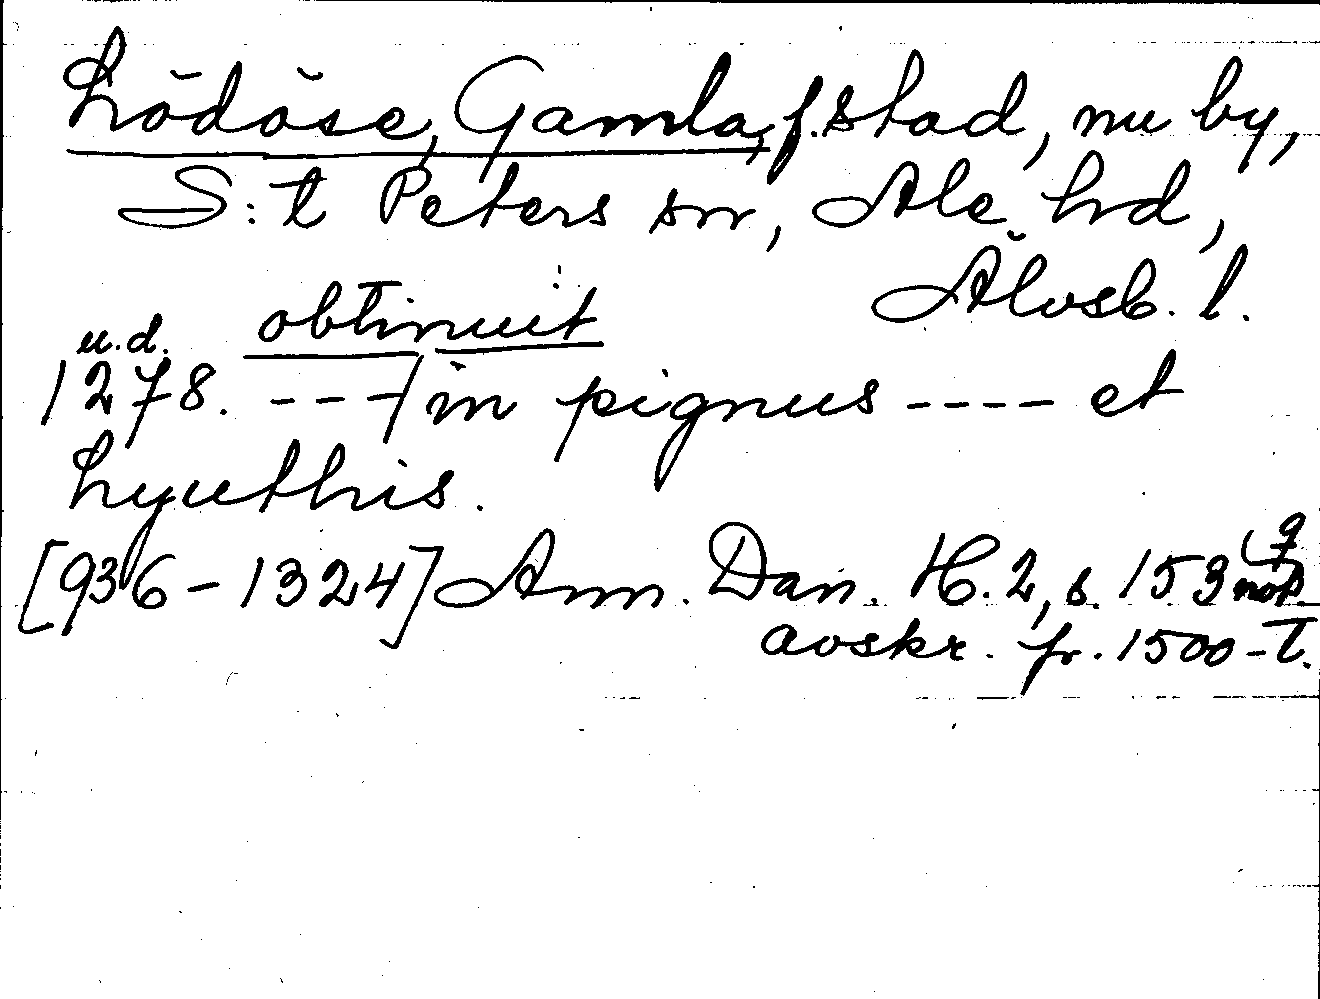 Lödöse, Gamla, f. stad, nu by,
S:t Peters sn, Ale hd,
Älvsb. l.
u.d. obtinuit
1278. --- / in pignus ---- et
Lyuthis.
[936-1324] Ann. Dan. H. 2, s. 153
avskr. fr. 1500-T.